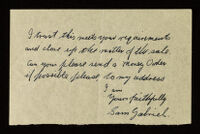 I trust this meets your requirements
and clears up the matter of the sale.
Can you please send a money Order
if possible please to my address
I am
Yours faithfully
Sam Gabriel.